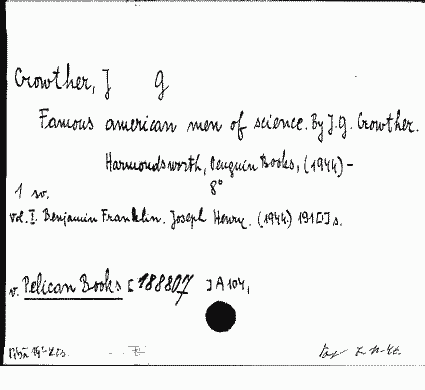 Crowther, J G
Famous american men of science. By J.G. Crowther.
Harmondsworth, Penguin Books, (1944) -
8°
1 sv.
vol. I. Benjamin Franklin. Joseph Henry. (1944.) 191 [] s.
v. Pelican Books [188807] A 104,